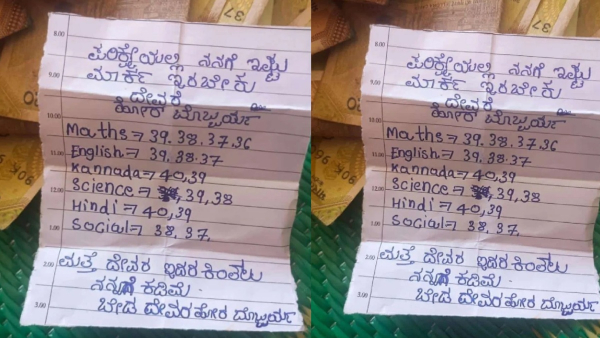 8.00
ಪರಿಕ್ಷೆಯಲ್ಲಿ ನನಗೆ ಇಷ್ಟು
9.00
ಮಾರ್ಕ್ಸ ಇರಬೇಕು
ದೇವರೆ
10.00
ಹೋರ ಬೊಬ್ಬರ್ಯ
Maths = 39.38.37.36
English = 39.38.37
11.00
Kannada = 40,39
Science = 39,38
12.00
Hindi = 40,39
1.00
Social = 38.37.
2.00
ಮತ್ತೆ ದೇವರ ಇದರ ಕಿಂತಲು
ನನ್ನಗೆ ಕಡಿಮೆ
3.00
ಬೇಡ ದೇವರ ಹೋರ ಬೊಬ್ಬರ್ಯ
8.00
ಪರಿಕ್ಷೆಯಲ್ಲಿ ನನಗೆ ಇಷ್ಟು
9.00
ಮಾರ್ಕ್ಸ ಇರಬೇಕು
ದೇವರೆ
10.00
ಹೋರ ಬೊಬ್ಬರ್ಯ
Maths = 39.38.37.36
English = 39.38.37
11.00
Kannada = 40,39
Science = 39,38
12.00
Hindi = 40,39
1.00
Social = 38.37.
2.00
ಮತ್ತೆ ದೇವರ ಇದರ ಕಿಂತಲು
ನನ್ನಗೆ ಕಡಿಮೆ
3.00
ಬೇಡ ದೇವರ ಹೋರ ಬೊಬ್ಬರ್ಯ